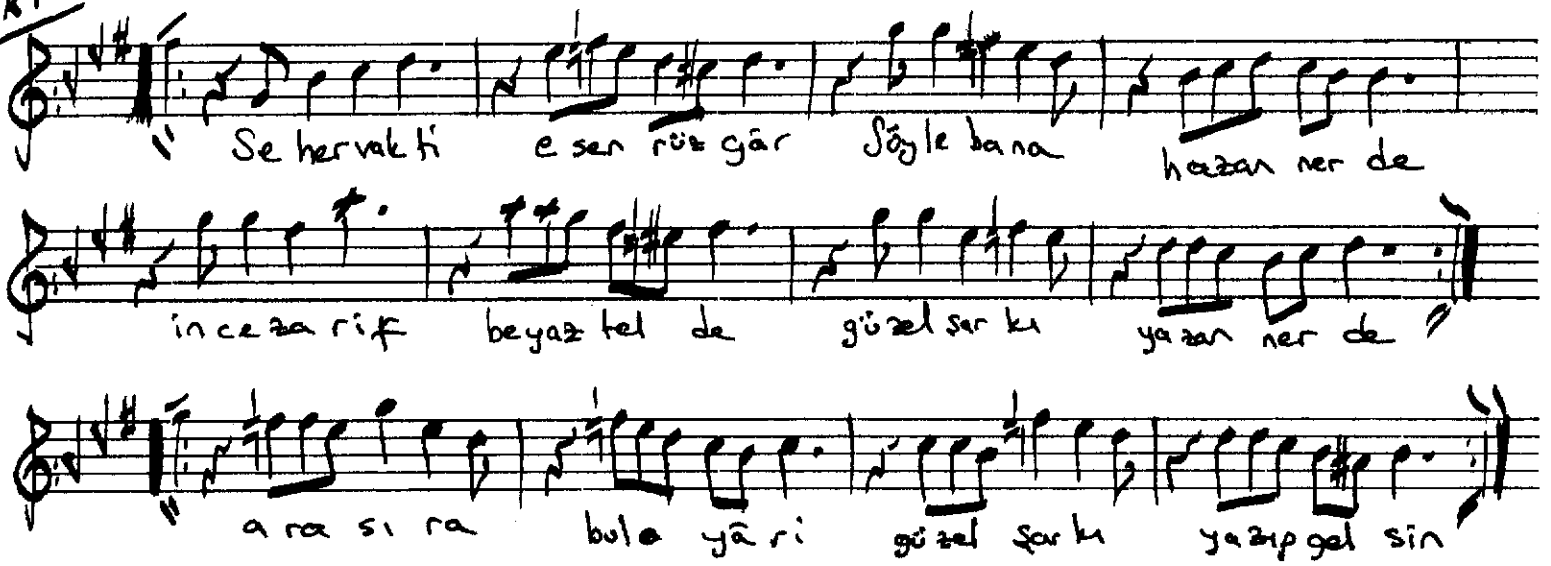 Se her vak ti e sen rüz gâr Söyle bana hazan ner de
in ce za rif beyaz tel de gü zel şar kı ya zan ner de
a ra sı ra bul o yâ ri gü zel şar kı ya zıp gel sin